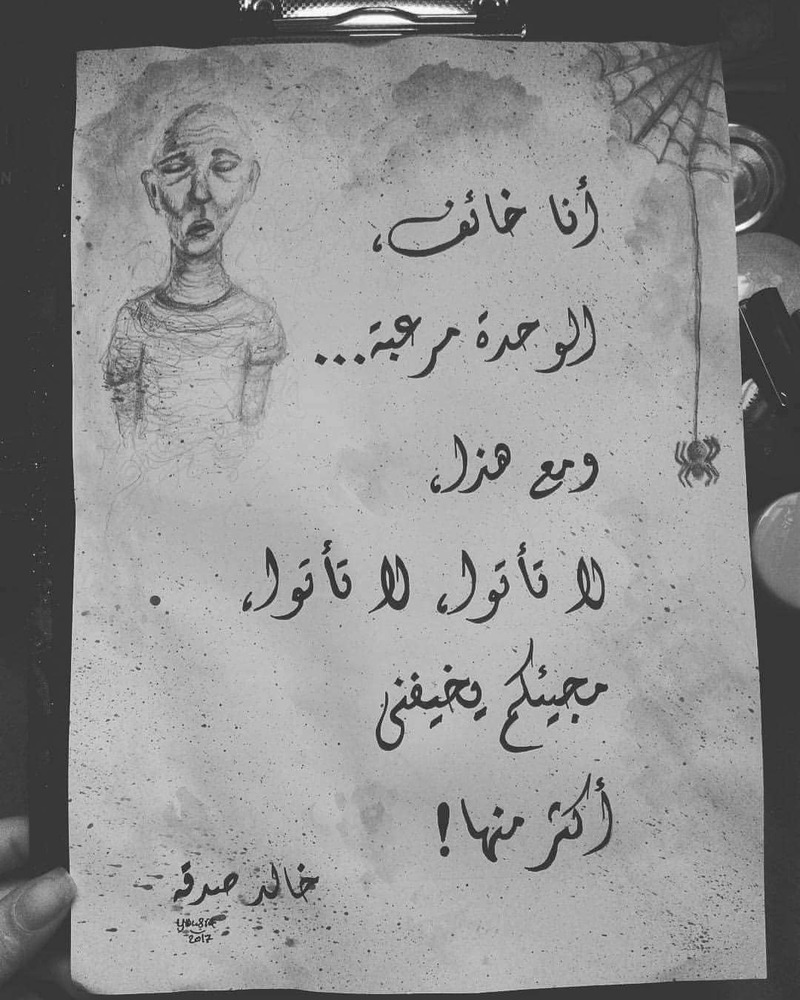 أنا خائف،
الوحدة مرعبة...
ومع هذا،
لا تأتوا، لا تأتوا،
مجيئكم يخيفني
أكثر منها!
خالد صدقة
yousra
2017